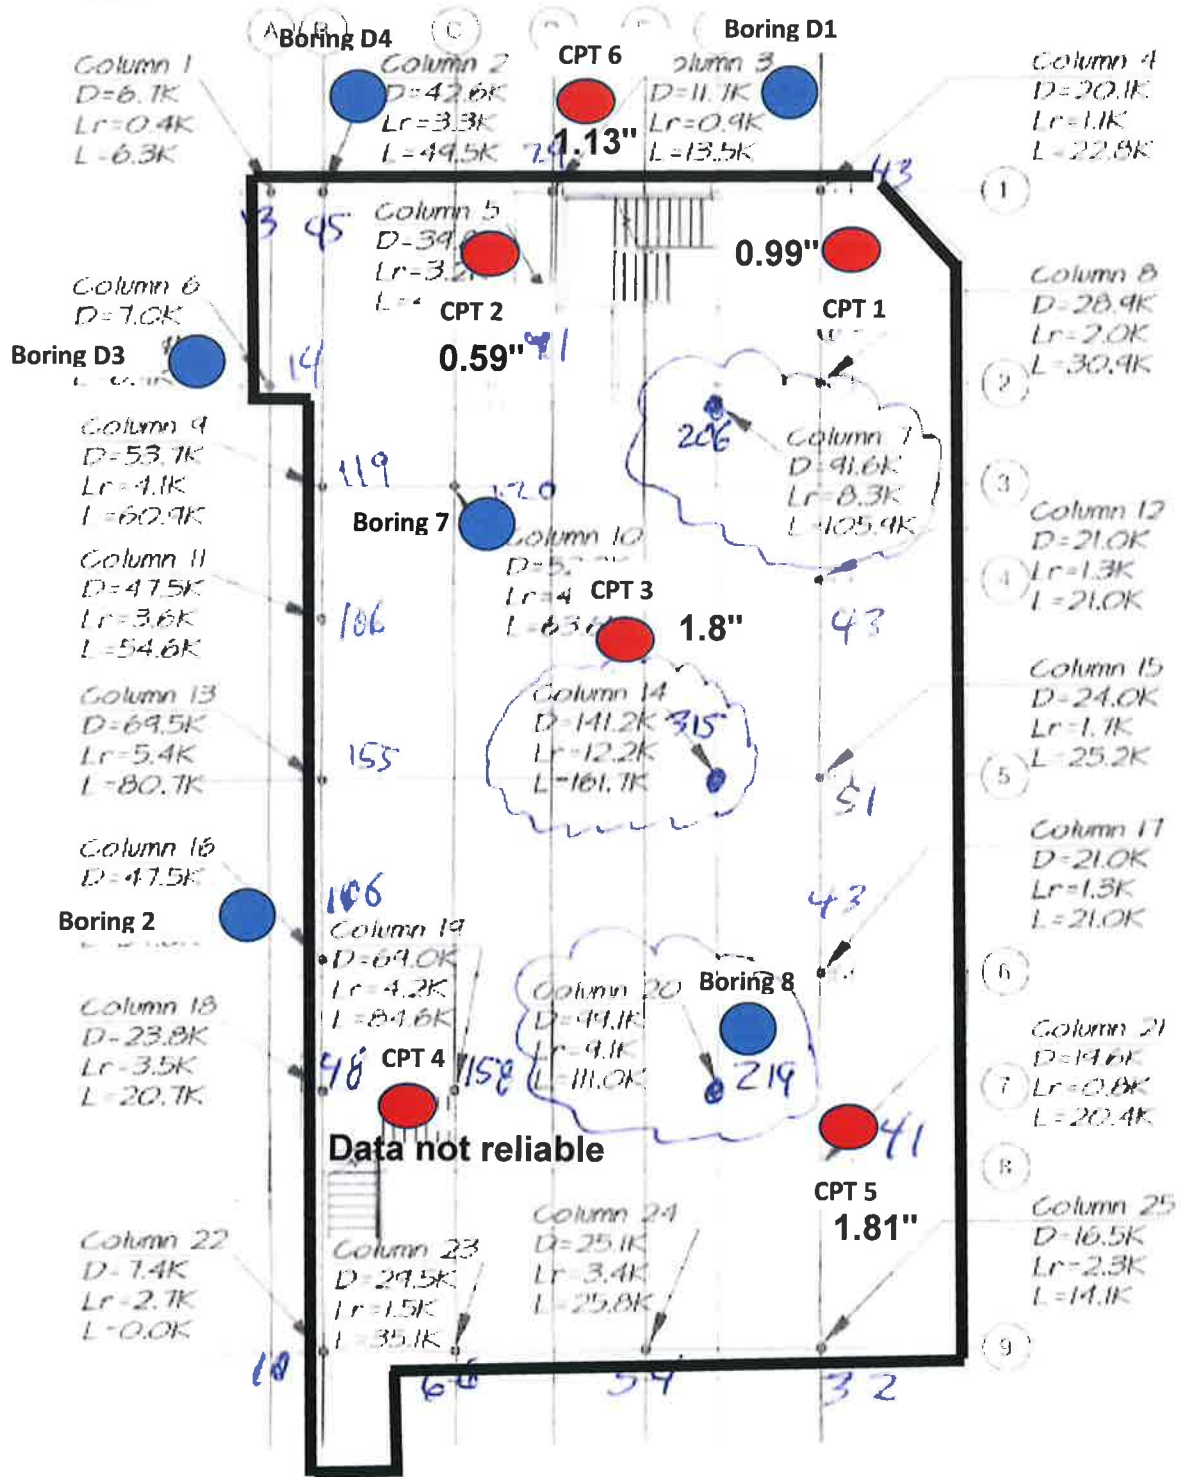 A
B
C
Boring D4
CPT 6
Boring D1
Column 1
D=6.7K
Lr=0.4K
L=6.3K
Column 2
D=42.6K
Lr=3.3K
L=49.5K
1.13"
olumn 3
D=11.7K
Lr=0.9K
L=13.5K
Column 4
D=20.1K
Lr=1.1K
L=22.8K
43
1
13
95
Column 5
D=39.
Lr=3.2
L=
CPT 2
0.59"
91
0.99"
CPT 1
Column 6
D=7.0K
Boring D3
14
Column 8
D=28.9K
Lr=2.0K
L=30.9K
2
206
Column 7
D=91.6K
Lr=8.3K
L=105.9K
Column 9
D=53.7K
Lr=4.1K
L=60.9K
119
3
Boring 7
Column 10
D=5
Lr=4
L=63.6
CPT 3
1.8"
Column 11
D=47.5K
Lr=3.6K
L=54.6K
106
Column 12
D=21.0K
Lr=1.3K
L=21.0K
4
43
Column 13
D=69.5K
Lr=5.4K
L=80.7K
155
Column 14
D=141.2K
Lr=12.2K
L=161.7K
315
Column 15
D=24.0K
Lr=1.7K
L=25.2K
5
51
Column 16
D=47.5K
Boring 2
106
Column 17
D=21.0K
Lr=1.3K
L=21.0K
43
6
Column 18
D=23.8K
Lr=3.5K
L=20.7K
48
Column 19
D=69.0K
Lr=4.2K
L=84.6K
CPT 4
158
Data not reliable
Column 20
D=99.1K
Lr=9.1K
L=111.0K
Boring 8
219
Column 21
D=19.6K
Lr=0.8K
L=20.4K
7
41
8
CPT 5
1.81"
Column 22
D=7.4K
Lr=2.7K
L=0.0K
10
Column 23
D=29.5K
Lr=1.5K
L=35.1K
66
Column 24
D=25.1K
Lr=3.4K
L=25.8K
54
Column 25
D=16.5K
Lr=2.3K
L=14.1K
9
32